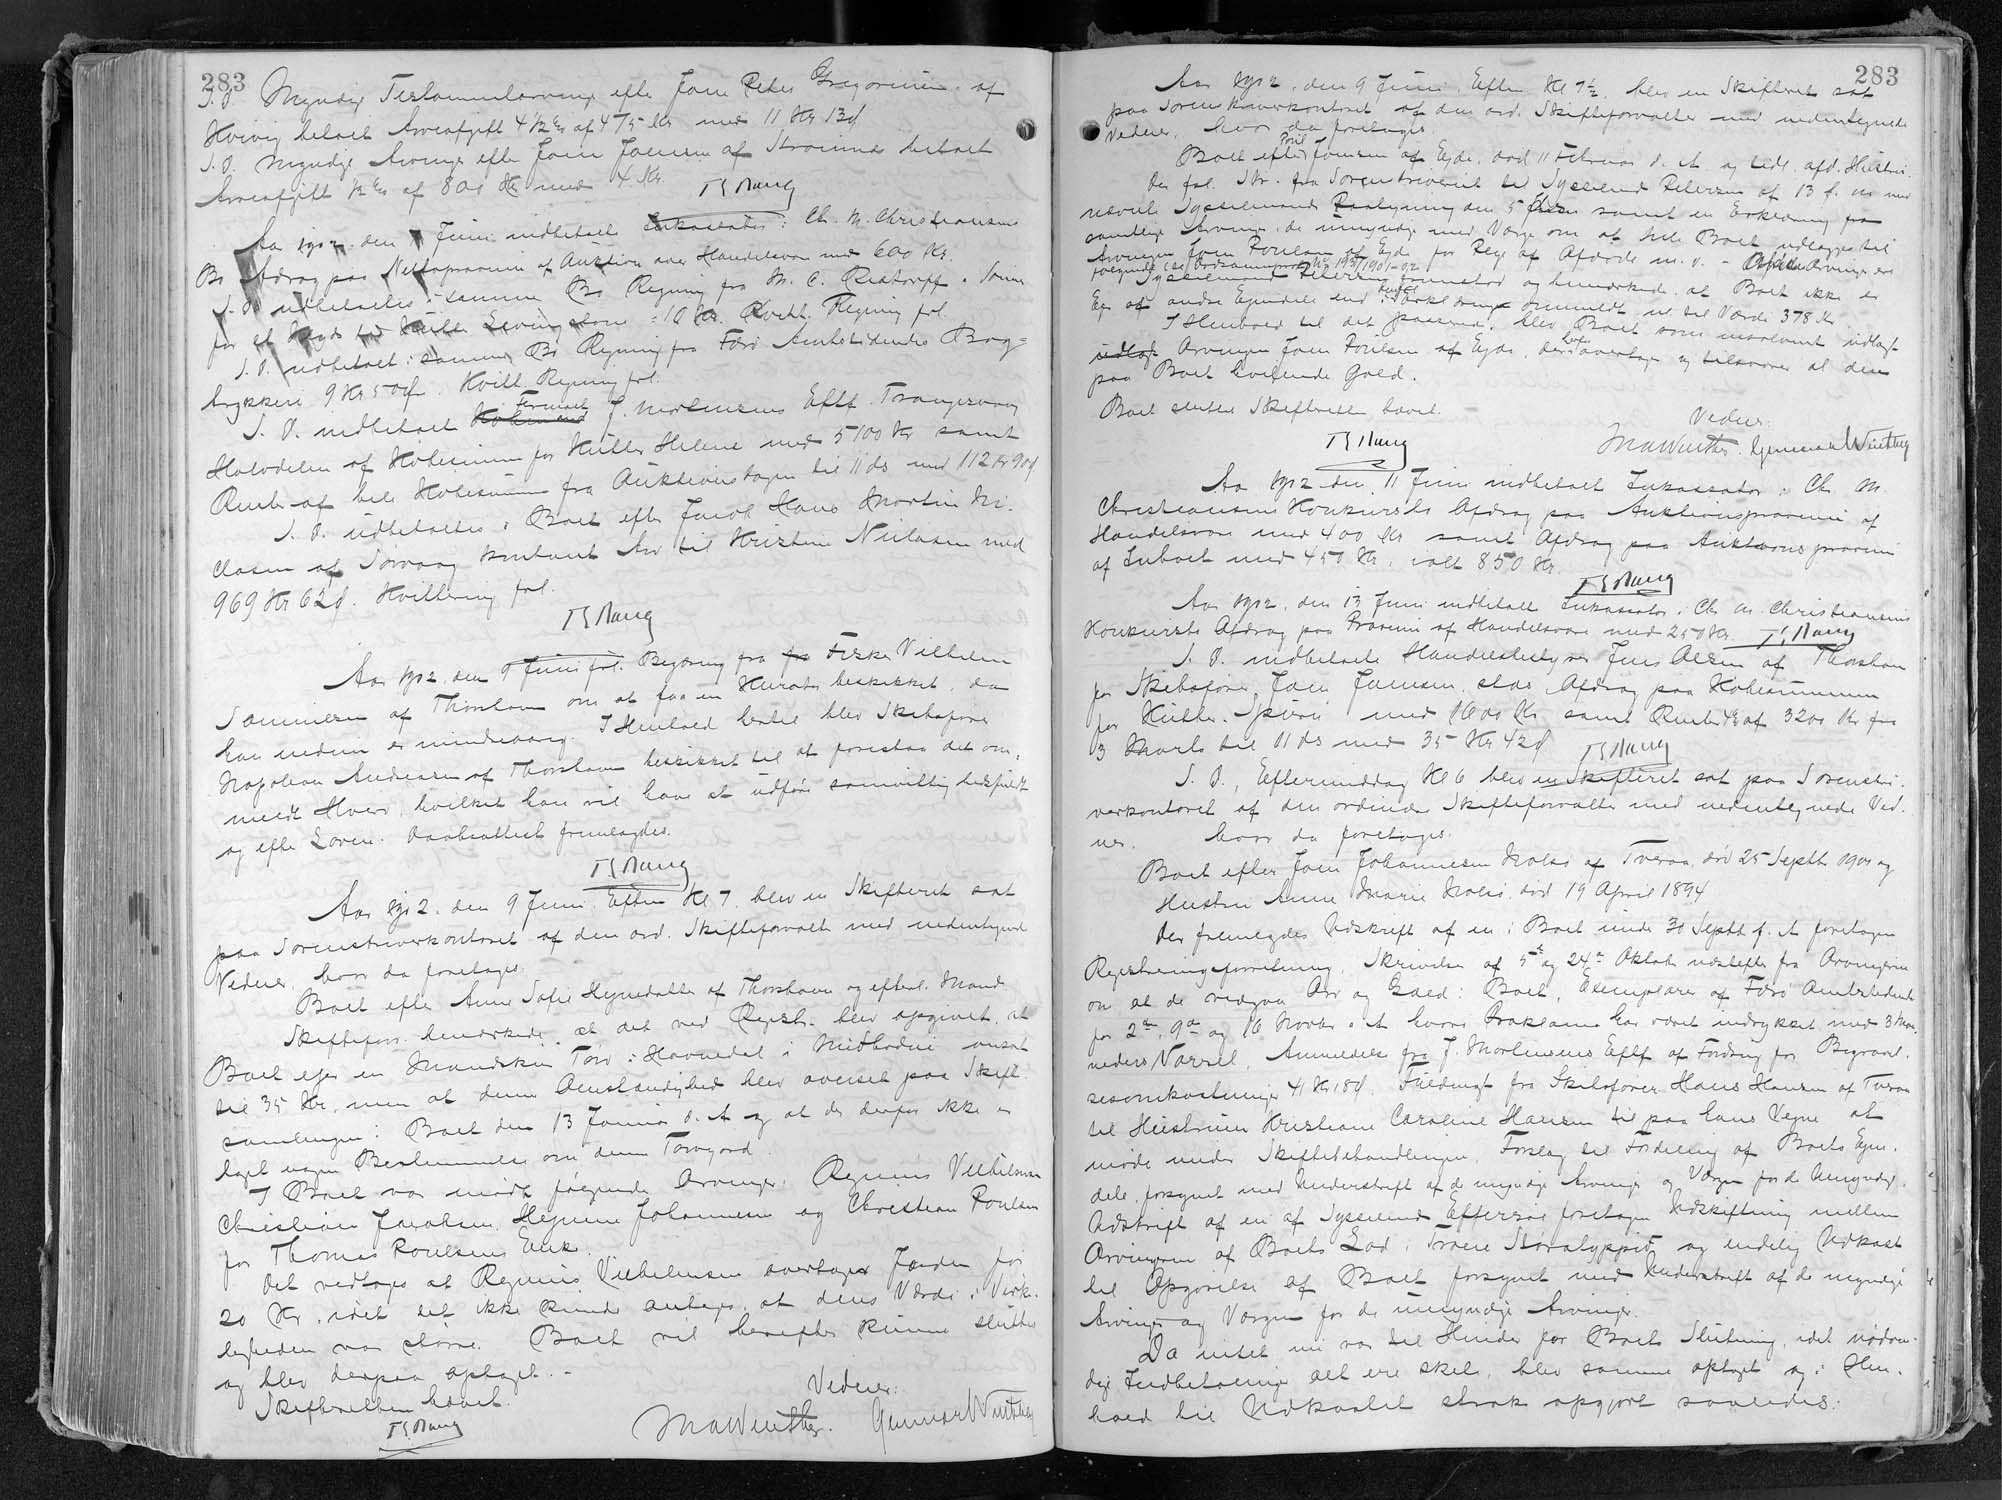 283
S. D. Myndige Testamentarvinge efter Joen Peter Gregorius. af
Hvivig betalt Arveafgift 4 1/2 % af 475 Kr med 11 Kr 13 d
S. D. Myndige Arvinge efter Joen Joensen af Strømnæs betalt
Arveafgift 1/2 % af 801 Kr med 4 Kr
Aar 1902 den Juni indbetalte Inkassator i Ch. M. Christiansens
Bo Afdrag paa Nettoprovenu af Auktion over Handelsvarer med 600 Kr.
S. D. udbetaltes i samme Bo Regning fra M. C. Restorff & Sønner
for et Kutter Livingstone 10 Kr. Kvitt. Regning fol.
S. D. udbetalt i samme Bo Regning fra Færø Amtstidendes Bog-
trykkeri 9 Kr 50 d. Kvitt. Regning fol.
S. D. indbetalt Firmaet J. Mortensens Eftf. Trangisvaag
Halvdelen af Købesummen for Kutter Helene med 5100 Kr samt
Rente af hele Købesummen fra Auktionsdagen til 11 ds med 112 Kr 90 d
S. D. udbetaltes i Boet efter Jacob Hans Martin Ni-
clasen af Sørvaag kontant Arv til Kristine Niclasen med
969 Kr 62 d. Kvittering fol.
Aar 1902 den 9 Juni fol. Begæring fra Fisker Vilhelm
Samuelsen af Thorshavn om at faa en Kurator beskikket, da
han endnu er mindreaarig. I Henhold hertil blev Skibsfører
Napoleon Andreasen af Thorshavn beskikket til at forestaa det om-
meldte Hverv, hvilket han vil have at udføre samvittighedsfuldt
og efter Loven. Daabsattest fremlagdes.
Aar 1902 den 9 Juni Efterm Kl 7 blev en Skifteret sat
paa Sorenskriverkontoret af den ord. Skifteforvalter med undertegnede
Vidner, hvor da foretages:
Boet efter Anne Sofie Hejnedatter af Thorshavn og efterl. Mand.
Skifteforv. bemærkede, at det ved Registr. blev opgivet, at
Boet ejer en Mandskin Tørv i Havnedal i ansat
til 35 Kr, men at denne Omstændighed blev overset paa Skifte-
samlingen i Boet den 13 Januar d. A. og at der derfor ikke er
taget nogen Bestemmelse om denne Tørvejord.
I Boet var mødt følgende Arvinger: Rasmus Vilhelmsen
Christian Jacobsen, Hejnene Johannesen og Christian Poulsen
for Thomas Poulsens Enke.
Det vedtoges at Rasmus Vilhelmsen overtager Jorden for
20 Kr, idet det ikke kunde antages, at dens Værdi i Virke-
ligheden var større. Boet vil herefter kunne sluttes
og blev derpaa optaget.
Skifteretten hævet.
Vidner:
283
Aar 1902, den 9 Juni, Efterm Kl 7 1/2, blev en Skifteret sat
paa Sorenskriverkontoret af den ord. Skifteforvalter med undertegnede
Vidner, hvor da foretages:
Boet efter Joensen af Ejde, død 11 Februar d. A. og tidl. afd. Hustru.
Der fol. Skr. fra Sorenskriveriet til Sysselmand Petersen af 13 f. M. med
nævnte Sysselmands Paategning den 5 samt en Erklæring fra
samtlige Arvinger, de umyndige med Værge om at hele Boet udlægges til
Arvingen Joen Poulsen af Ejde for Pleje af Afdøde m. v. -
følgende
Sysselmand Petersen og bemærkede at Boet ikke er
Ejer af andre Ejendele end i Erklæringen ommeldt til Værdi 378 Kr
I Henhold til det passerede, blev Boet som insolvent udlagt
Arvingen Joen Poulsen af Ejde, der overtager og tilsvarer al den
paa Boet hvilende Gæld.
Boet sluttet. Skifteretten hævet.
Vidner:
Aar 1902 den 11 Juni indbetalt Inkassator i Ch. M.
Christiansens Konkursbo Afdrag paa Auktionsprovenu af
Handelsvarer med 400 Kr samt Afdrag paa Auktionsprovenu
af Indboet med 450 Kr, ialt 850 Kr.
Aar 1902, den 13 Juni indbetalt Inkassator i Ch. M. Christiansens
Konkursbo Afdrag paa Provenu af Handelsvarer med 250 Kr.
S. D. indbetalte Handelsbestyrer Jens Olsen af Thorshavn
for Skibsfører Joen Joensen Afdrag paa Købesummen
for Kutter med 1600 Kr samt Rente 4 % af 3200 Kr fra
3 Marts til 11 ds med 35 Kr 42 d
S. D., Eftermiddag Kl 6 blev en Skifteret sat paa Sorenskri-
verkontoret af den ordinære Skifteforvalter med undertegnede Vid-
ner, hvor da foretages:
Boet efter Joen Johannesen Holm af Tveraa, død 25 Septbr 1901 og
Hustru Anne Marie død 19 April 1894
Der fremlagdes Udskrift af en i Boet under 30 Septbr f. A. foretagen
Registreringsforretning, Skrivelse af 5te og 24de Oktober næstefter fra Arvingerne
om at de vedgaa Arv og Gæld i Boet, Exemplarer af Færø Amtstidende
for 2den, 9de og 16 Novbr s. A. hvori Proklama har været indrykket med 3 Maa-
neders Varsel, Anmeldelse fra J. Mortensens Eftf. af Fordring for Begravel-
sesomkostninger 41 Kr 18 d, Fuldmagt fra Skibsfører Hans Hansen af Tveraa
til Hustruen Kristiane Caroline Hansen til paa hans Vegne at
møde under Skiftebehandlingen, Forslag til Fordeling af Boets Ejen-
dele, forsynet med Underskrift af de myndige Arvinger og Værgen for de Umyndige.
Udskrift af en af Sysselmand Effersøe foretagen Udskiftning mellem
Arvingerne af Boets Lod i og endelig Udkast
til Opgørelse af Boet forsynet med Underskrift af de myndige
Arvinger og Værgen for de umyndige Arvinger.
Da intet nu var til Hinder for Boets Slutning, idet nødven-
dige Indbetalinger alt ere skete, blev samme optaget og i Hen-
hold til Udkastet straks opgjort saaledes: